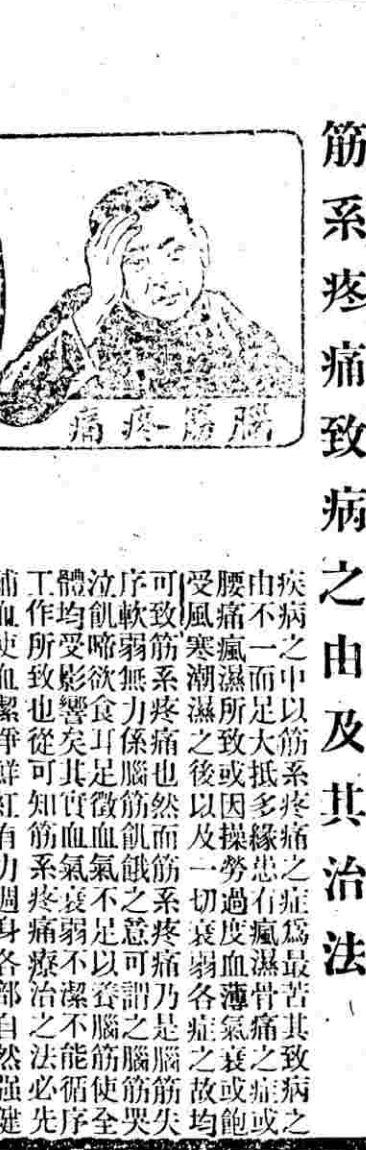 筋系疼痛致病之由及其治法
腦筋疼痛
疾病之中以筋系疼痛之症爲最苦其致病之
由不一而足大抵多緣患有瘋濕骨痛之症或
腰痛瘋濕所致或因操勞過度血薄氣衰或飽
受風寒潮濕之後以及一切衰弱各症之故均
可致筋系疼痛也然而筋系疼痛乃是腦筋失
序軟弱無力係腦筋飢餓之意可謂之腦筋哭
泣飢啼欲食耳足徵血氣不足以養腦筋使全
體均受影響矣其實血氣衰弱不潔不能循序
工作所致也從可知筋系疼痛療治之法必先
補血使血潔淨鮮紅有力週身各部自然强健